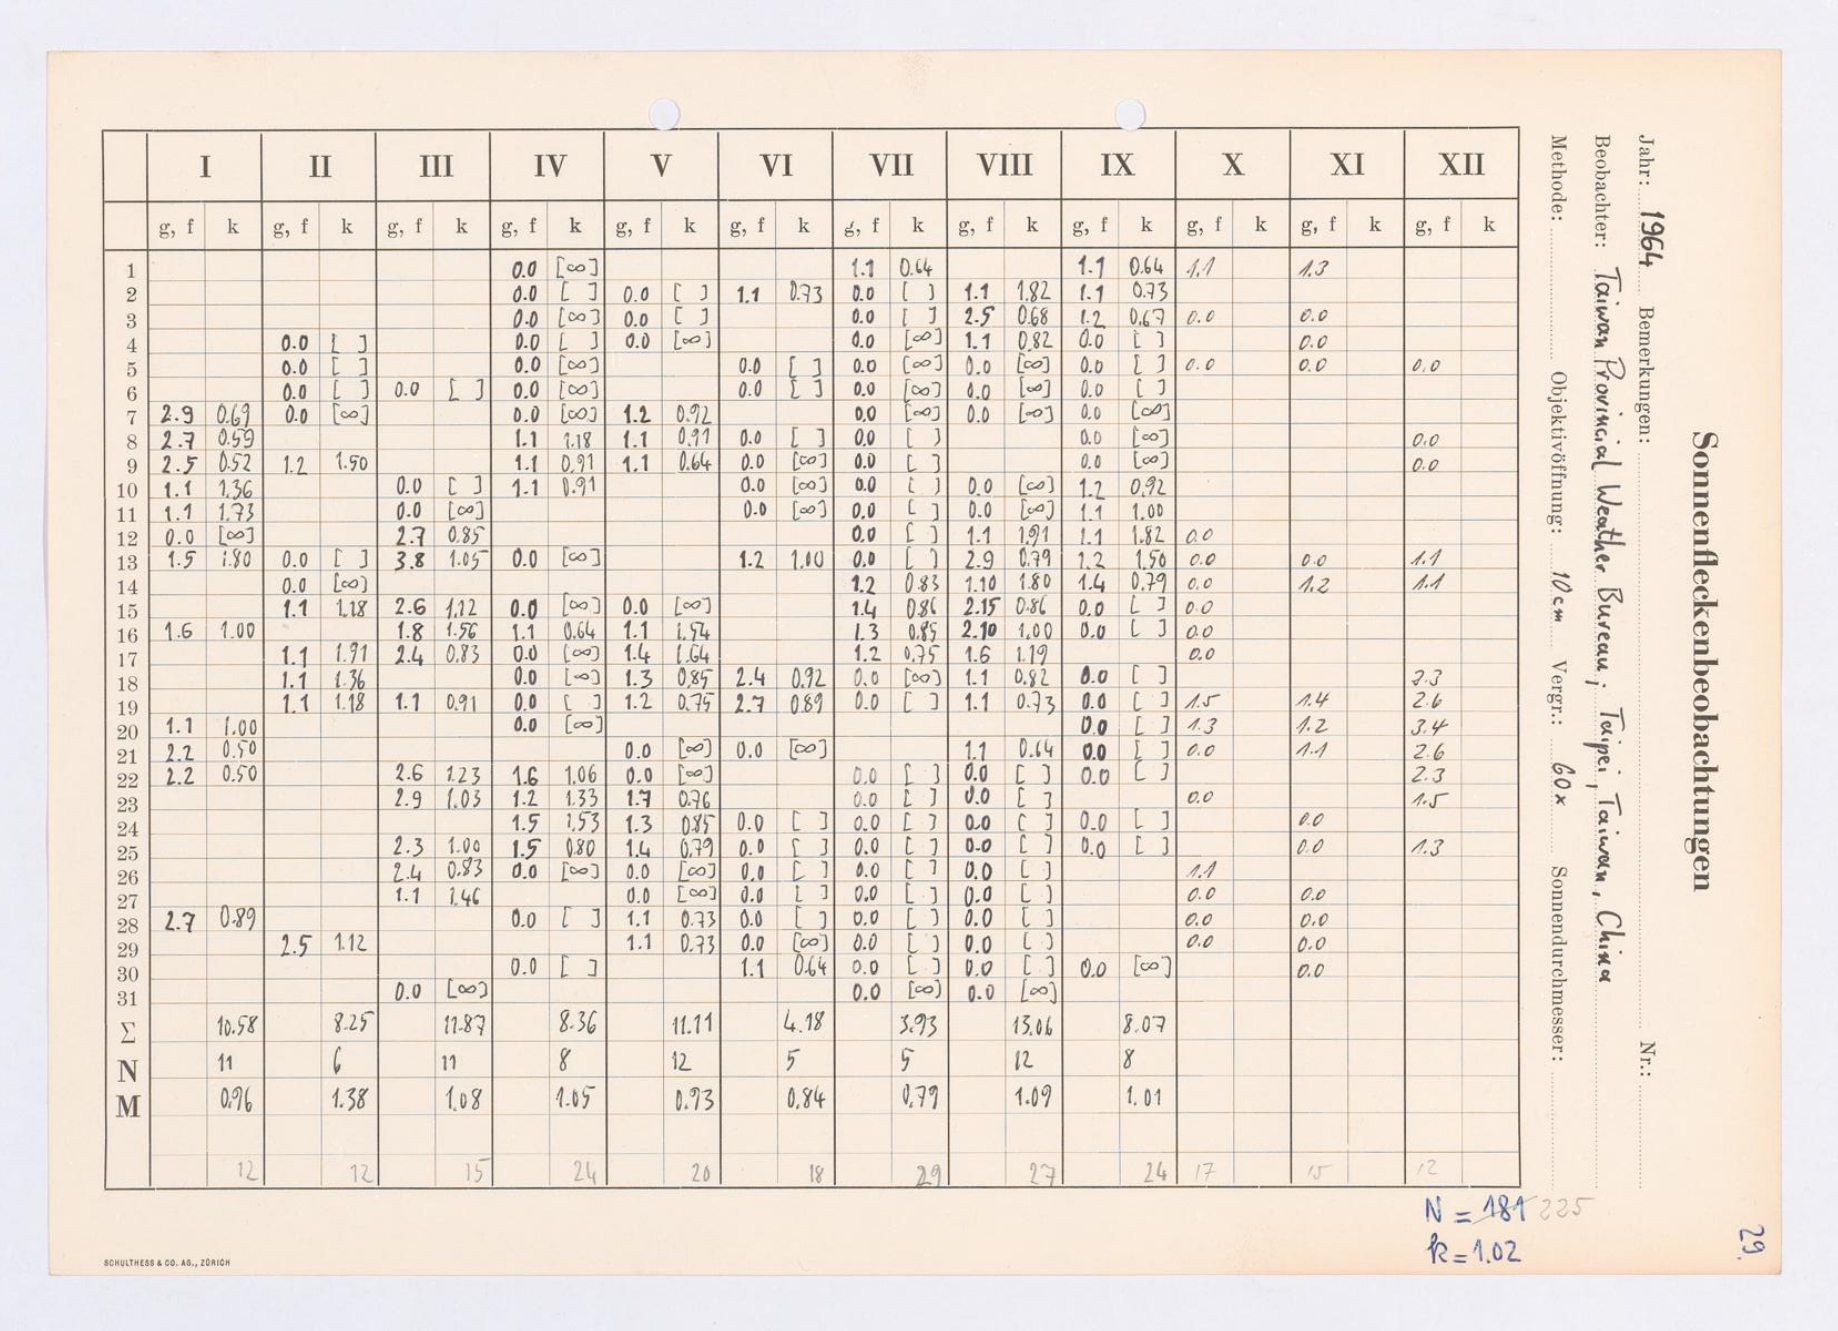 Sonnenfleckenbeobachtungen
Jahr: 1964 Bemerkungen: Nr.:
Beobachter: Taiwan Provincial Weather Bureau; Taipei, Taiwan, China
Methode: Objektivöffnung: 10 cm Vergr.: 60x Sonnendurchmesser:
I II III IV V VI VII VIII IX X XI XII
g, f k g, f k g, f k g, f k g, f k g, f k g, f k g, f k g, f k g, f k g, f k g, f k
1 0.0 [∞] 1.1 0.64 1.1 0.64 1.1 1.3
2 0.0 [ ] 0.0 [ ] 1.1 0.73 0.0 [ ] 1.1 1.82 1.1 0.73
3 0.0 [∞] 0.0 [ ] 0.0 [ ] 2.5 0.68 1.2 0.67 0.0 0.0
4 0.0 [ ] 0.0 [ ] 0.0 [∞] 0.0 [∞] 1.1 0.82 0.0 [ ] 0.0
5 0.0 [ ] 0.0 [∞] 0.0 [ ] 0.0 [∞] 0.0 [∞] 0.0 [ ] 0.0 0.0 0.0
6 0.0 [ ] 0.0 [ ] 0.0 [∞] 0.0 [ ] 0.0 [∞] 0.0 [∞] 0.0 [ ]
7 2.9 0.69 0.0 [∞] 0.0 [∞] 1.2 0.92 0.0 [∞] 0.0 [∞] 0.0 [∞]
8 2.7 0.59 1.1 1.18 1.1 0.91 0.0 [ ] 0.0 [ ] 0.0 [∞] 0.0
9 2.5 0.52 1.2 1.50 1.1 0.91 1.1 0.64 0.0 [∞] 0.0 [ ] 0.0 [∞] 0.0
10 1.1 1.36 0.0 [ ] 1.1 0.91 0.0 [∞] 0.0 [ ] 0.0 [∞] 1.2 0.92
11 1.1 1.73 0.0 [∞] 0.0 [∞] 0.0 [ ] 0.0 [∞] 1.1 1.00
12 0.0 [∞] 2.7 0.85 0.0 [ ] 1.1 1.91 1.1 1.82 0.0
13 1.5 1.80 0.0 [ ] 3.8 1.05 0.0 [∞] 1.2 1.00 0.0 [ ] 2.9 0.79 1.2 1.50 0.0 0.0 1.1
14 0.0 [∞] 1.2 0.83 1.10 1.80 1.4 0.79 0.0 1.2 1.1
15 1.1 1.18 2.6 1.12 0.0 [∞] 0.0 [∞] 1.4 0.86 2.15 0.86 0.0 [ ] 0.0
16 1.6 1.00 1.8 1.56 1.1 0.64 1.1 1.54 1.3 0.85 2.10 1.00 0.0 [ ] 0.0
17 1.1 1.91 2.4 0.83 0.0 [∞] 1.4 1.64 1.2 0.75 1.6 1.19 0.0
18 1.1 1.36 0.0 [∞] 1.3 0.85 2.4 0.92 0.0 [∞] 1.1 0.82 0.0 [ ] 2.3
19 1.1 1.18 1.1 0.91 0.0 [ ] 1.2 0.75 2.7 0.89 0.0 [ ] 1.1 0.73 0.0 [ ] 1.5 1.4 2.6
20 1.1 1.00 0.0 [∞] 0.0 [ ] 1.3 1.2 3.4
21 2.2 0.50 0.0 [∞] 0.0 [∞] 1.1 0.64 0.0 [ ] 0.0 1.1 2.6
22 2.2 0.50 2.6 1.23 1.6 1.06 0.0 [∞] 0.0 [ ] 0.0 [ ] 0.0 [ ] 2.3
23 2.9 1.03 1.2 1.33 1.7 0.76 0.0 [ ] 0.0 [ ] 0.0 1.5
24 1.5 1.53 1.3 0.85 0.0 [ ] 0.0 [ ] 0.0 [ ] 0.0 [ ] 0.0
25 2.3 1.00 1.5 0.80 1.4 0.79 0.0 [ ] 0.0 [ ] 0.0 [ ] 0.0 [ ] 0.0 1.3
26 2.4 0.83 0.0 [∞] 0.0 [∞] 0.0 [ ] 0.0 [ ] 0.0 [ ] 1.1
27 1.1 1.46 0.0 [∞] 0.0 [ ] 0.0 [ ] 0.0 [ ] 0.0 0.0
28 2.7 0.89 0.0 [ ] 1.1 0.73 0.0 [ ] 0.0 [ ] 0.0 [ ] 0.0 0.0
29 2.5 1.12 1.1 0.73 0.0 [∞] 0.0 [ ] 0.0 [ ] 0.0 0.0
30 0.0 [ ] 1.1 0.64 0.0 [ ] 0.0 [ ] 0.0 [∞] 0.0
31 0.0 [∞] 0.0 [∞] 0.0 [∞]
Σ 10.58 8.25 11.87 8.36 11.11 4.18 3.93 13.06 8.07
N 11 6 11 8 12 5 5 12 8
M 0.96 1.38 1.08 1.05 0.93 0.84 0.79 1.09 1.01
12 12 15 24 20 18 29 27 24 17 15 12
N = 181 225
k = 1.02
29
SCHULTHESS & CO. AG., ZÜRICH